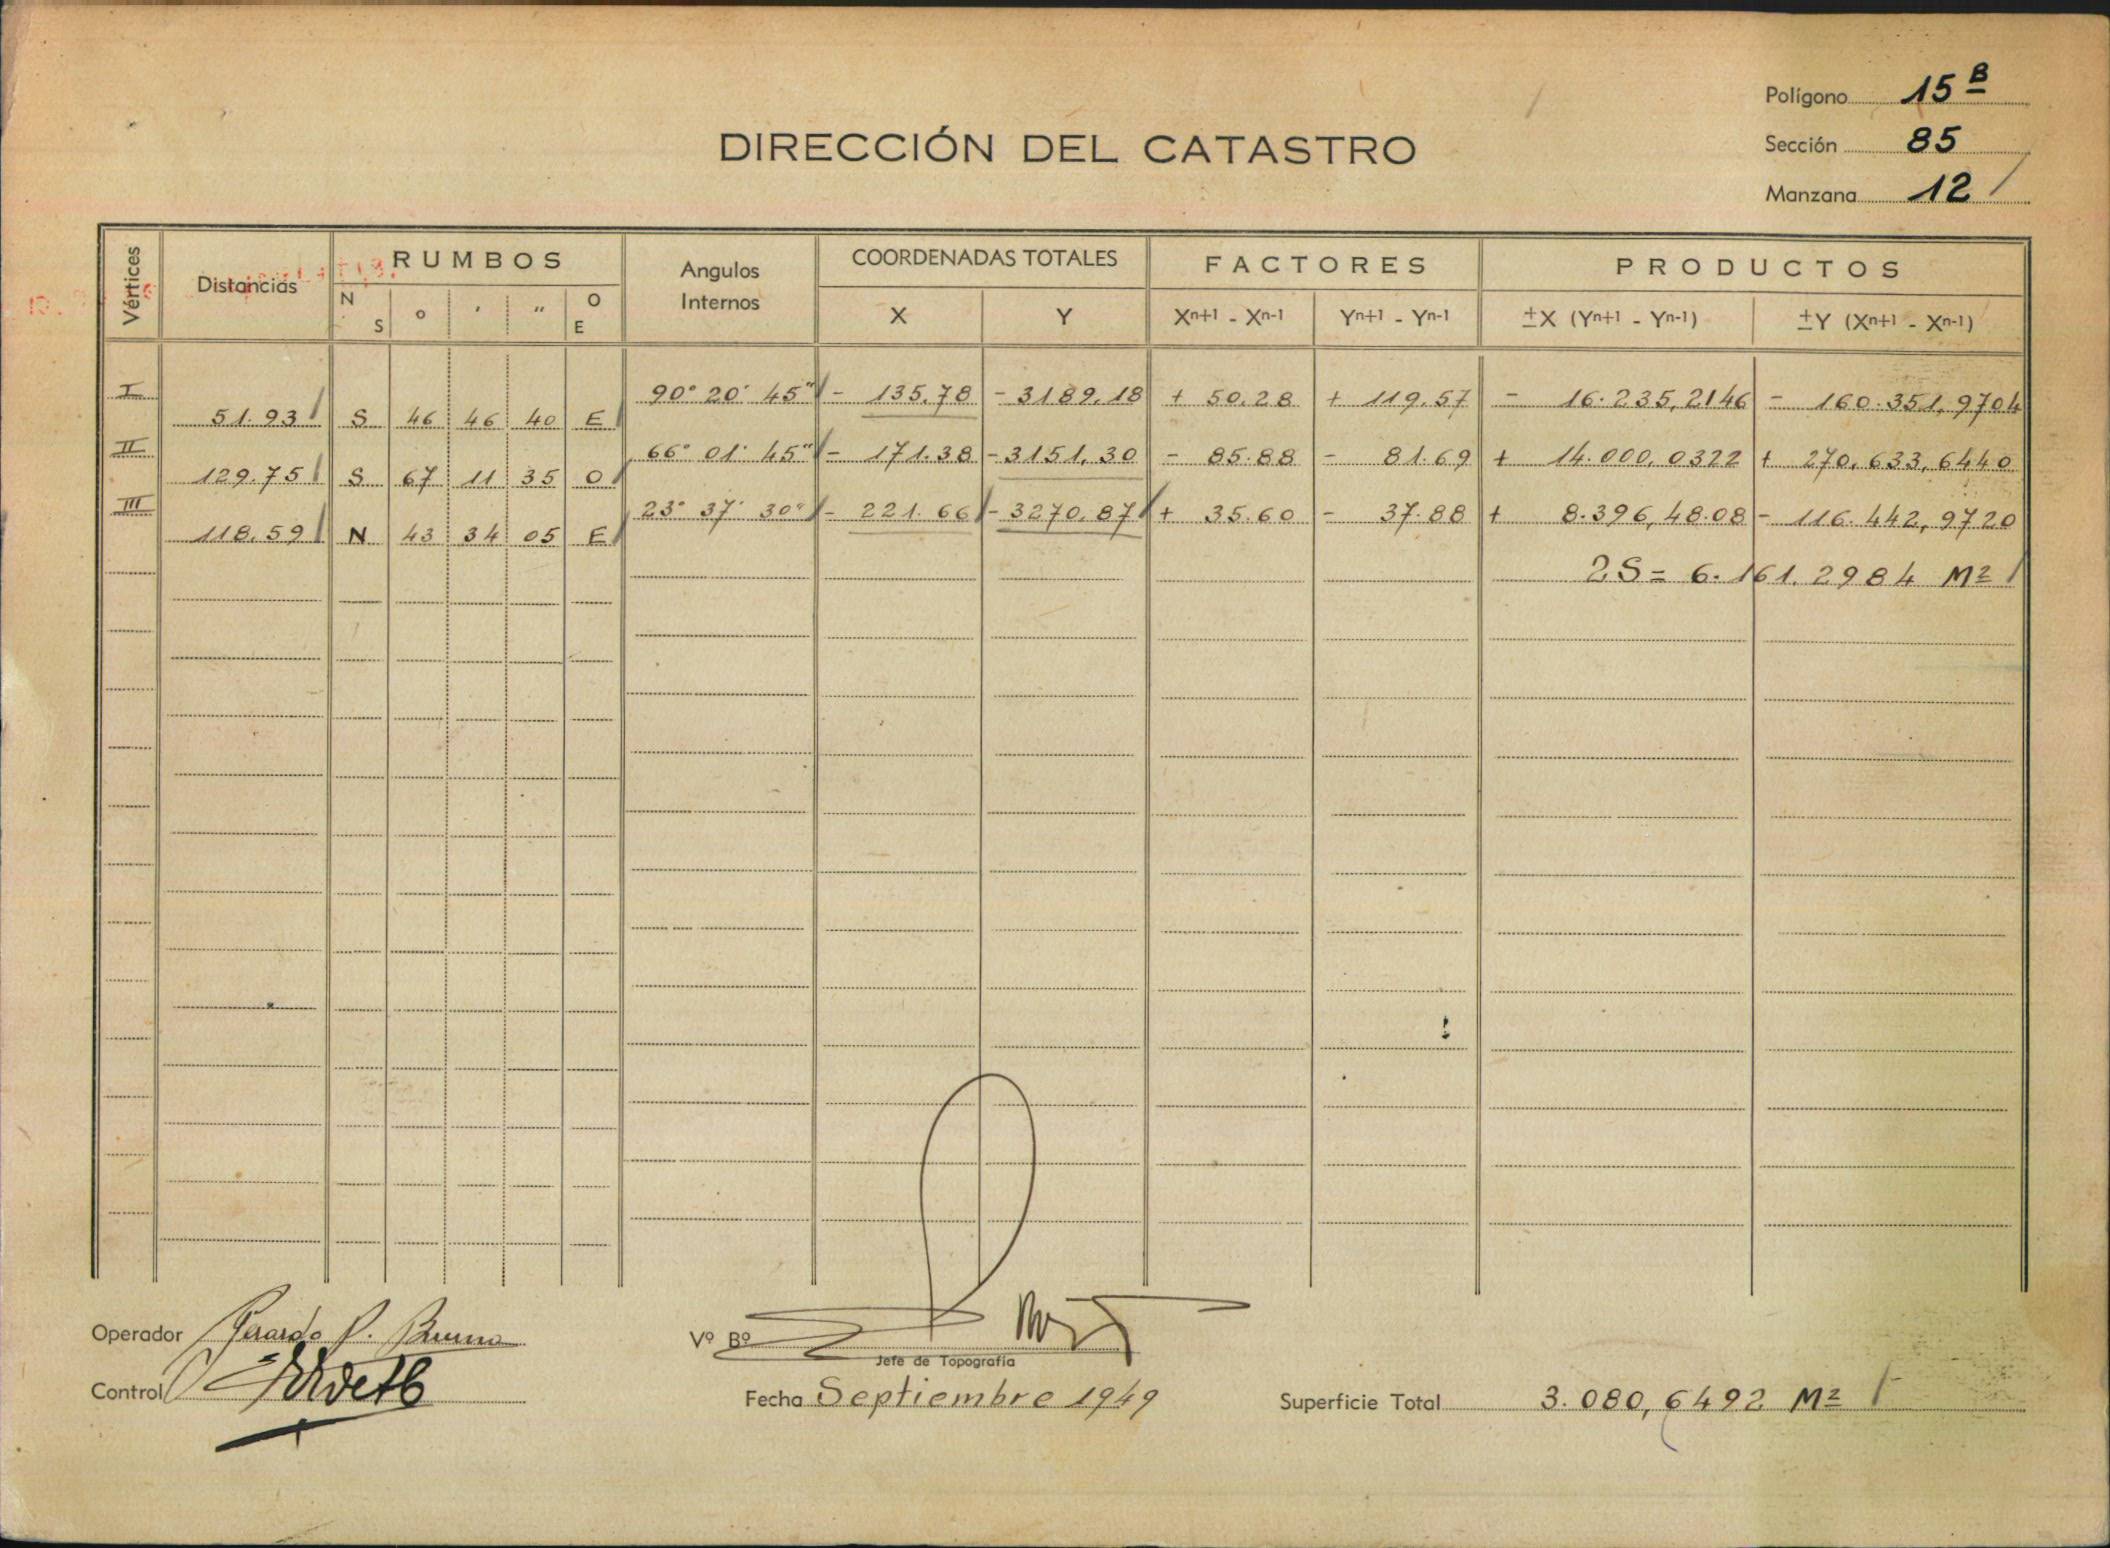 Polígono 15 B
DIRECCIÓN DEL CATASTRO
Sección 85
Manzana 12
Vértices Distancias RUMBOS Angulos Internos COORDENADAS TOTALES FACTORES PRODUCTOS
N S o ' " O E X Y Xn+1 - Xn-1 Yn+1 - Yn-1 ±X (Yn+1 - Yn-1) ±Y (Xn+1 - Xn-1)
I 90° 20' 45" - 135.78 - 3189.18 + 50.28 + 119.57 - 16.235,2146 - 160.351,9704
51.93 S 46 46 40 E
II 66° 01' 45" - 171.38 - 3151,30 - 85.88 - 81.69 + 14.000,0322 + 270,633,6440
129.75 S 67 11 35 O
III 23° 37' 30" - 221.66 - 3270,87 + 35.60 - 37.88 + 8.396,48.08 - 116.442,9720
118.59 N 43 34 05 E
2S = 6.161.2984 M2
Operador Gerardo P. Bruno
Vº Bº
Jefe de Topografía
Control
Fecha Septiembre 1949
Superficie Total 3.080,6492 M2